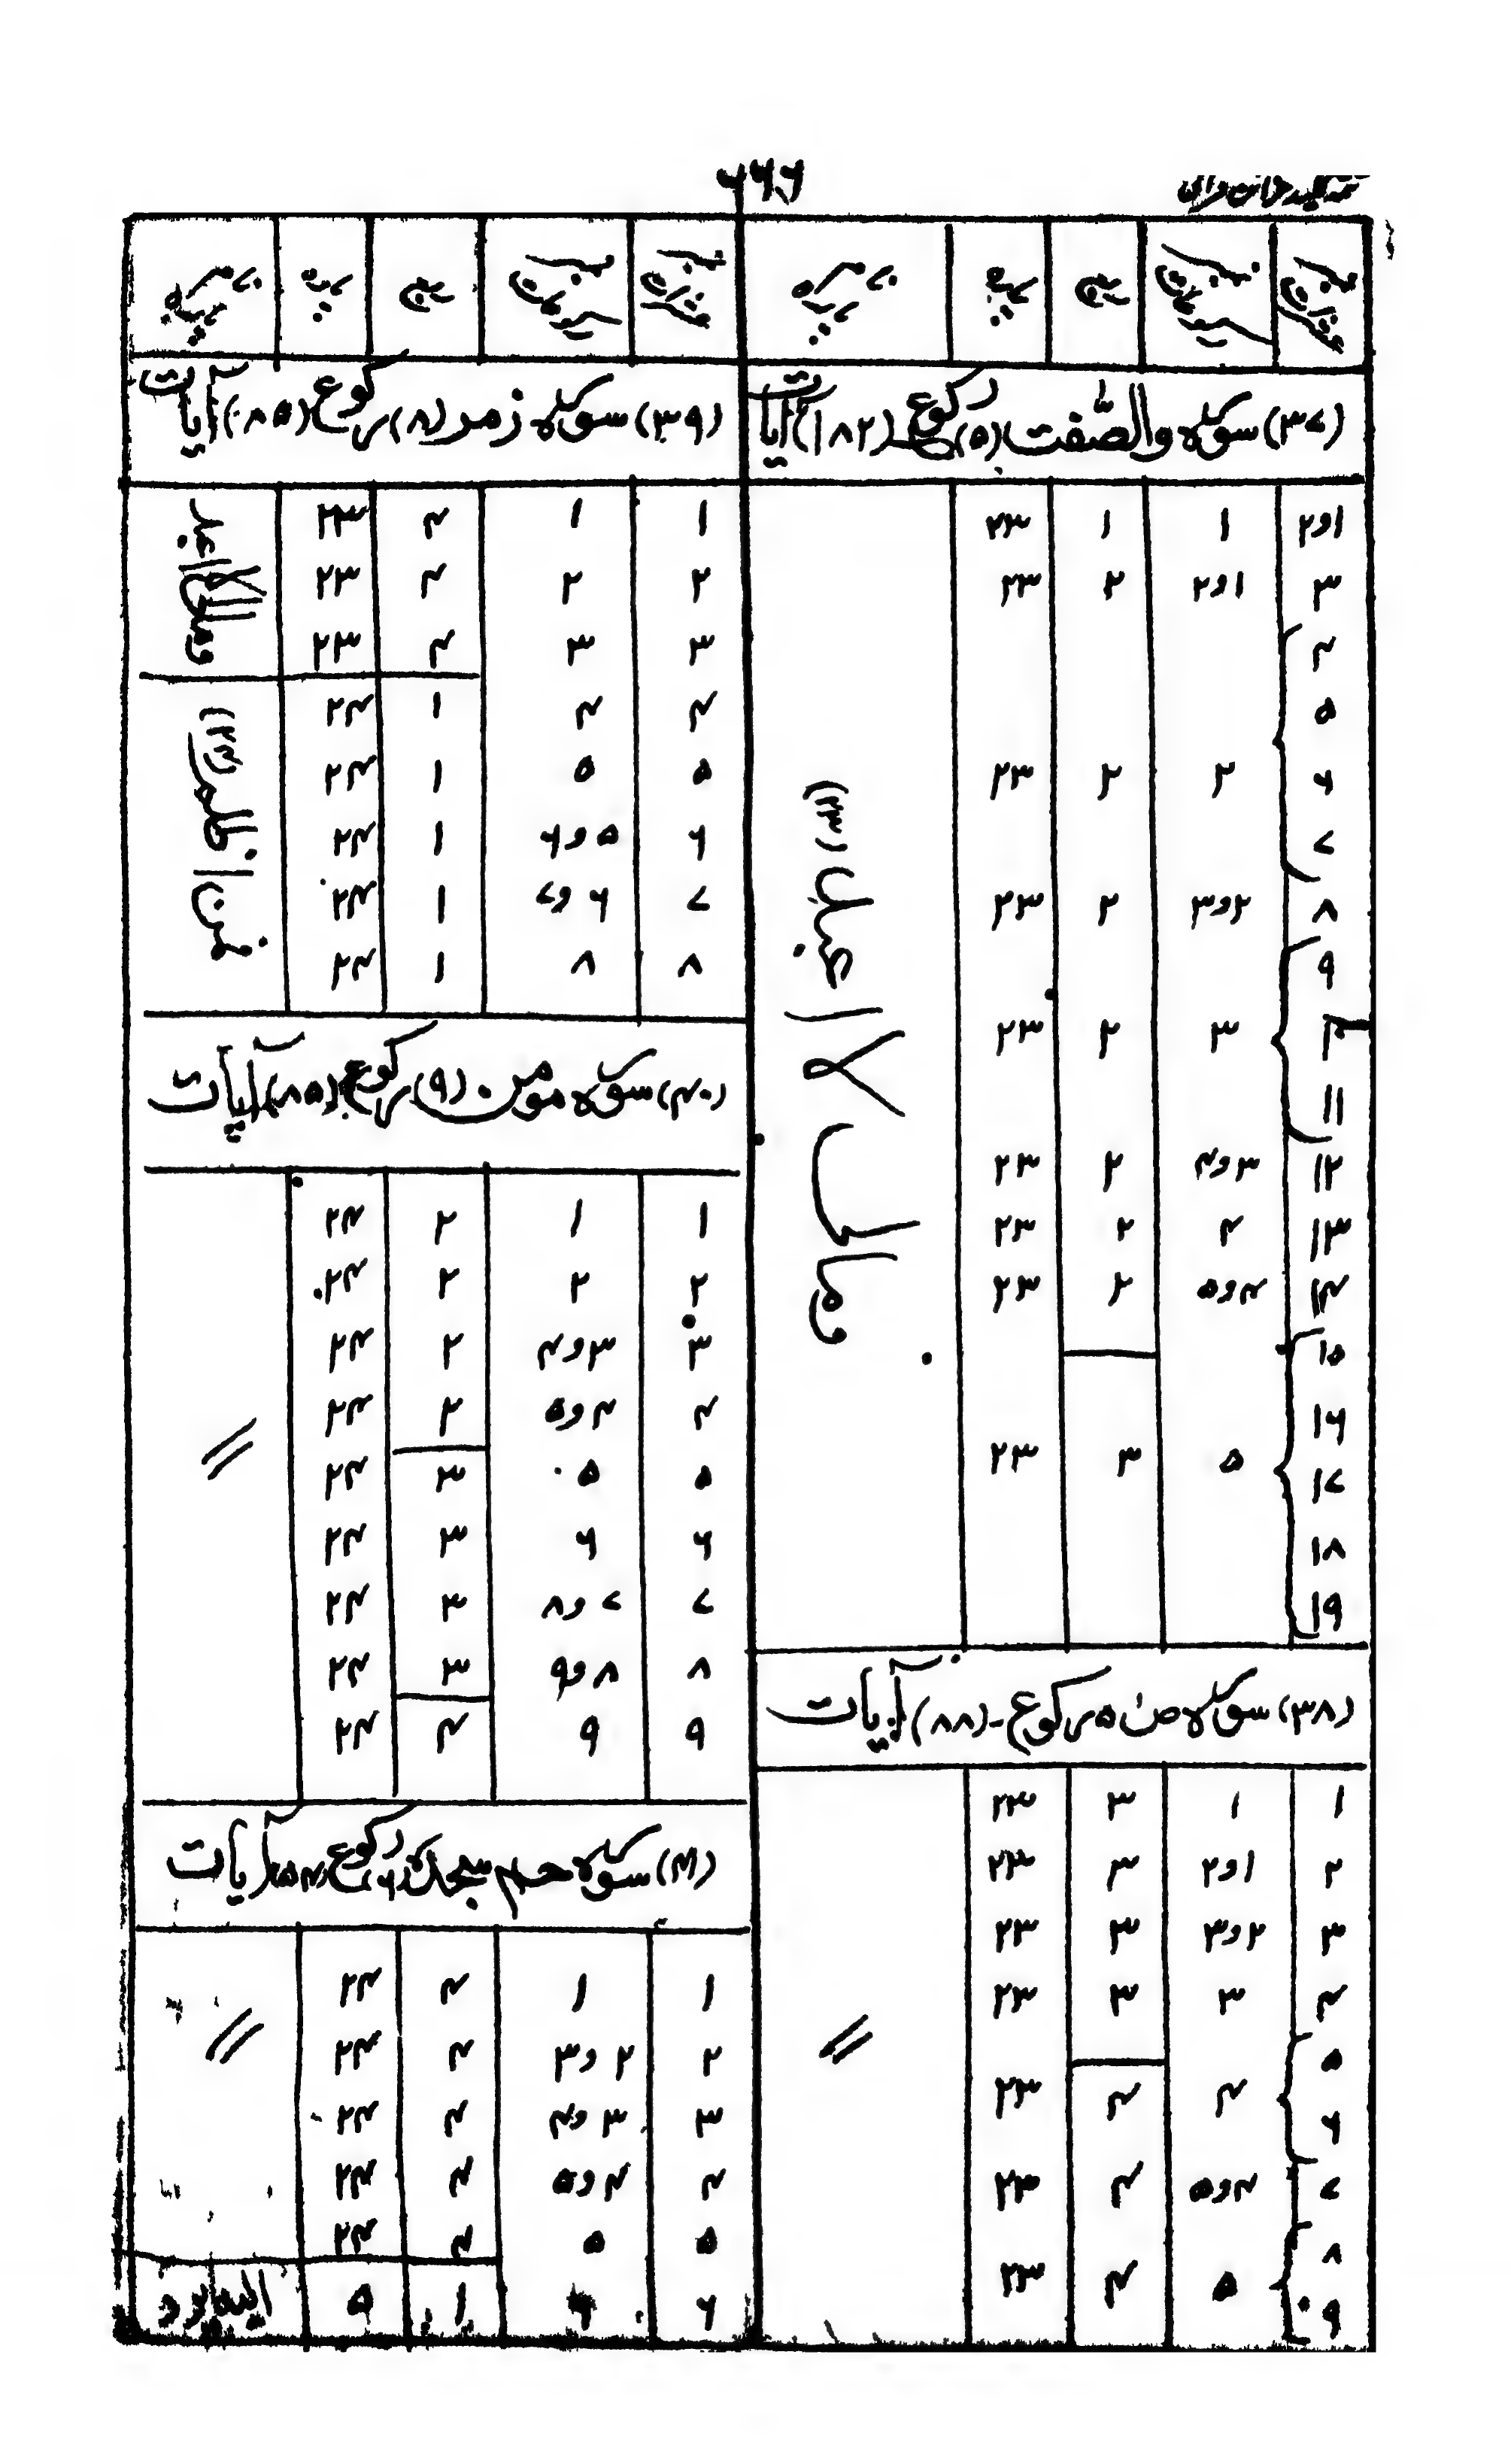 ۶۶۶
نمبر فقرات | نمبر رکوعات | ربع | پارہ | نام پارہ
(۳۷) سورہ والصّٰفٰت (۵) رکوع (۱۸۲) آیات
۱و۲ | ۱ | ۱ | ۲۳
۳ | ۱و۲ | ۲ | ۲۳
۴
۵
۶ | ۲ | ۲ | ۲۳
۷
۸ | ۲و۳ | ۲ | ۲۳
۹
۱۰ | ۳ | ۲ | ۲۳
۱۱
۱۲ | ۳و۴ | ۲ | ۲۳
۱۳ | ۴ | ۲ | ۲۳
۱۴ | ۴و۵ | ۲ | ۲۳
۱۵
۱۶
۱۷ | ۵ | ۳ | ۲۳
۱۸
۱۹
ومالی لا اعبد (۲۳)
(۳۸) سورہ ص ۵ رکوع ۔ (۸۸) آیات
۱ | ۱ | ۳ | ۲۳
۲ | ۱و۲ | ۳ | ۲۳
۳ | ۲و۳ | ۳ | ۲۳
۴ | ۳ | ۳ | ۲۳ | //
۵
۶ | ۴ | ۴ | ۲۳
۷ | ۴و۵ | ۴ | ۲۳
۸
۹ | ۵ | ۴ | ۲۳
نمبر فقرات | نمبر رکوعات | ربع | پارہ | نام پارہ
(۳۹) سورہ زمر (۸) رکوع (۸۵) آیات
۱ | ۱ | ۴ | ۲۳
۲ | ۲ | ۴ | ۲۳
۳ | ۳ | ۴ | ۲۳
ومالی لا اعبد
۴ | ۴ | ۱ | ۲۴
۵ | ۵ | ۱ | ۲۴
۶ | ۵و۶ | ۱ | ۲۴
۷ | ۶و۷ | ۱ | ۲۴
۸ | ۸ | ۱ | ۲۴
فمن اظلم (۲۴)
(۴۰) سورہ مومن ۔ (۹) رکوع (۸۵) آیات
۱ | ۱ | ۲ | ۲۴
۲ | ۲ | ۲ | ۲۴
۳ | ۳و۴ | ۲ | ۲۴
۴ | ۴و۵ | ۲ | ۲۴ | //
۵ | ۵ | ۳ | ۲۴
۶ | ۶ | ۳ | ۲۴
۷ | ۷و۸ | ۳ | ۲۴
۸ | ۸و۹ | ۳ | ۲۴
۹ | ۹ | ۴ | ۲۴
(۴۱) سورہ حٰم سجدہ (۶) رکوع (۵۴) آیات
۱ | ۱ | ۴ | ۲۴
۲ | ۲ و۳ | ۴ | ۲۴ | //
۳ | ۳ و۴ | ۴ | ۲۴
۴ | ۴و۵ | ۴ | ۲۴
۵ | ۵ | ۴ | ۲۴
۶ | ۶ | ۱ | ۵ | الیہ یرد